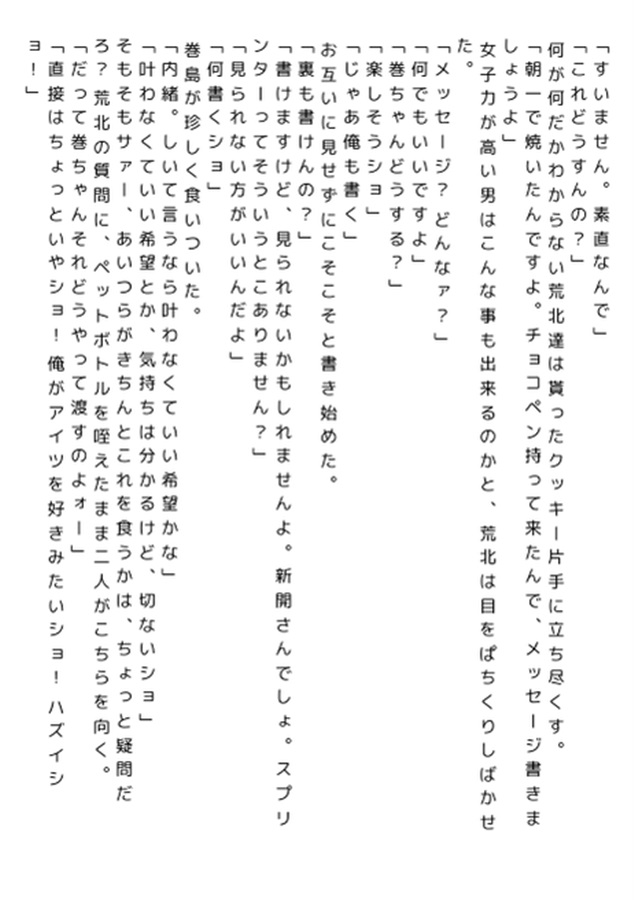 「すいません。素直なんで」
「これどうすんの？」
何が何だかわからない荒北達は貰ったクッキー片手に立ち尽くす。
「朝一で焼いたんですよ。チョコペン持って来たんで、メッセージ書きま
しょうよ」
女子力が高い男はこんな事も出来るのかと、荒北は目をぱちくりしばかせ
た。
「メッセージ？どんなァ？」
「何でもいいですよ」
「巻ちゃんどうする？」
「楽しそうショ」
「じゃあ俺も書く」
お互いに見せずにこそこそと書き始めた。
「裏も書けんの？」
「書けますけど、見られないかもしれませんよ。新開さんでしょ。スプリ
ンターってそういうとこありません？」
「見られない方がいいんだよ」
「何書くショ」
巻島が珍しく食いついた。
「内緒。しいて言うなら叶わなくていい希望かな」
「叶わなくていい希望とか、気持ちは分かるけど、切ないショ」
そもそもサァー、あいつらがきちんとこれを食うかは、ちょっと疑問だ
ろ？荒北の質問に、ペットボトルを咥えたまま二人がこちらを向く。
「だって巻ちゃんそれどうやって渡すのよォー」
「直接はちょっといやショ！俺がアイツを好きみたいショ！ハズイシ
ョ！」